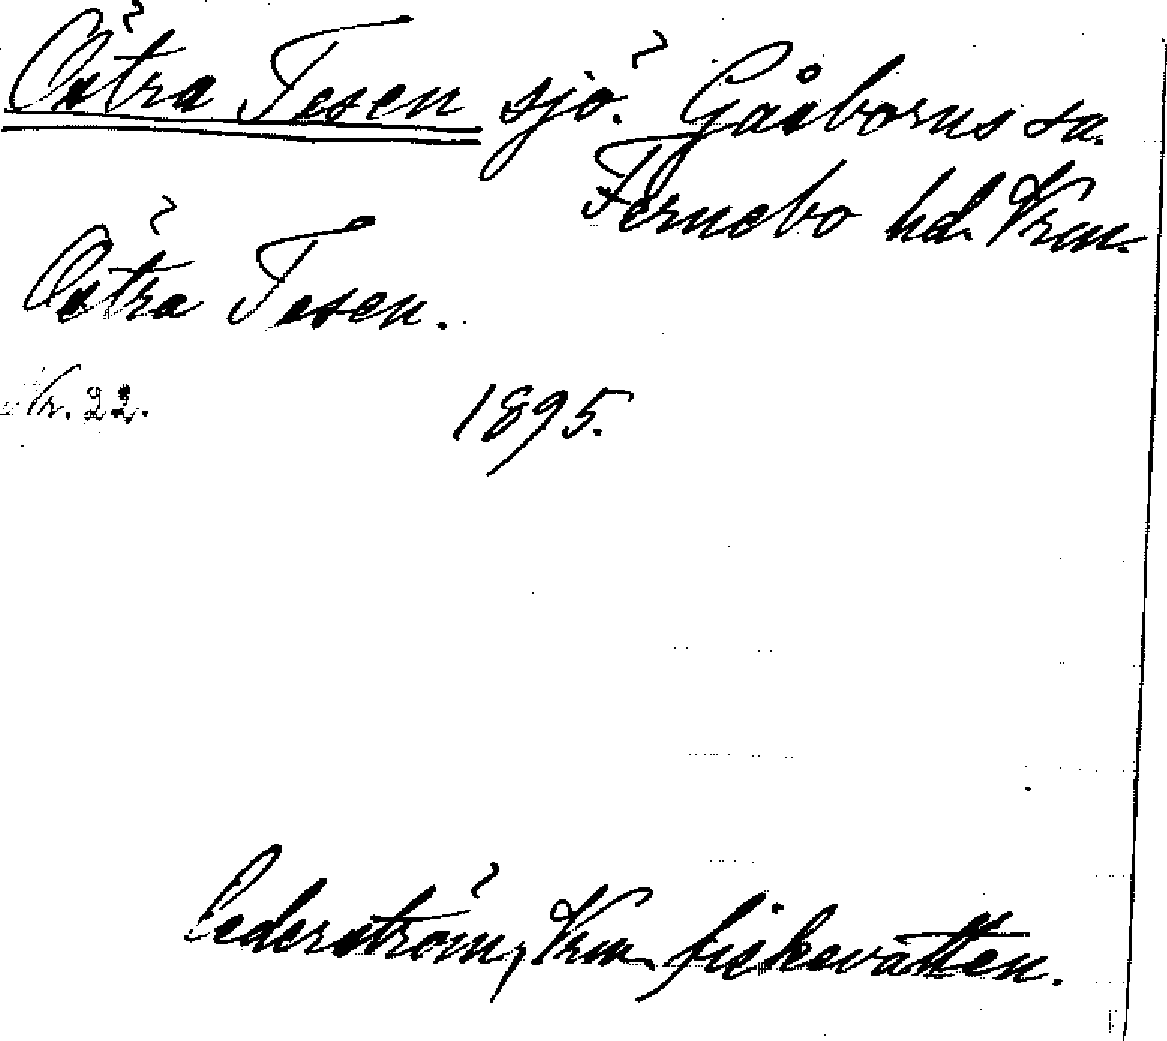 Östra Tesen sjö. Gåsborns sn.
Fernebo hd. Vrm.
Östra Tesen.
Nr. 22. 1895.
Cederström, Vrm. fiskevatten.